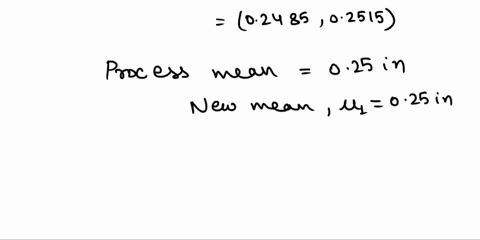 = (0.2485, 0.2515)
Process mean = 0.25 in
New mean, μ₁ = 0.25 in